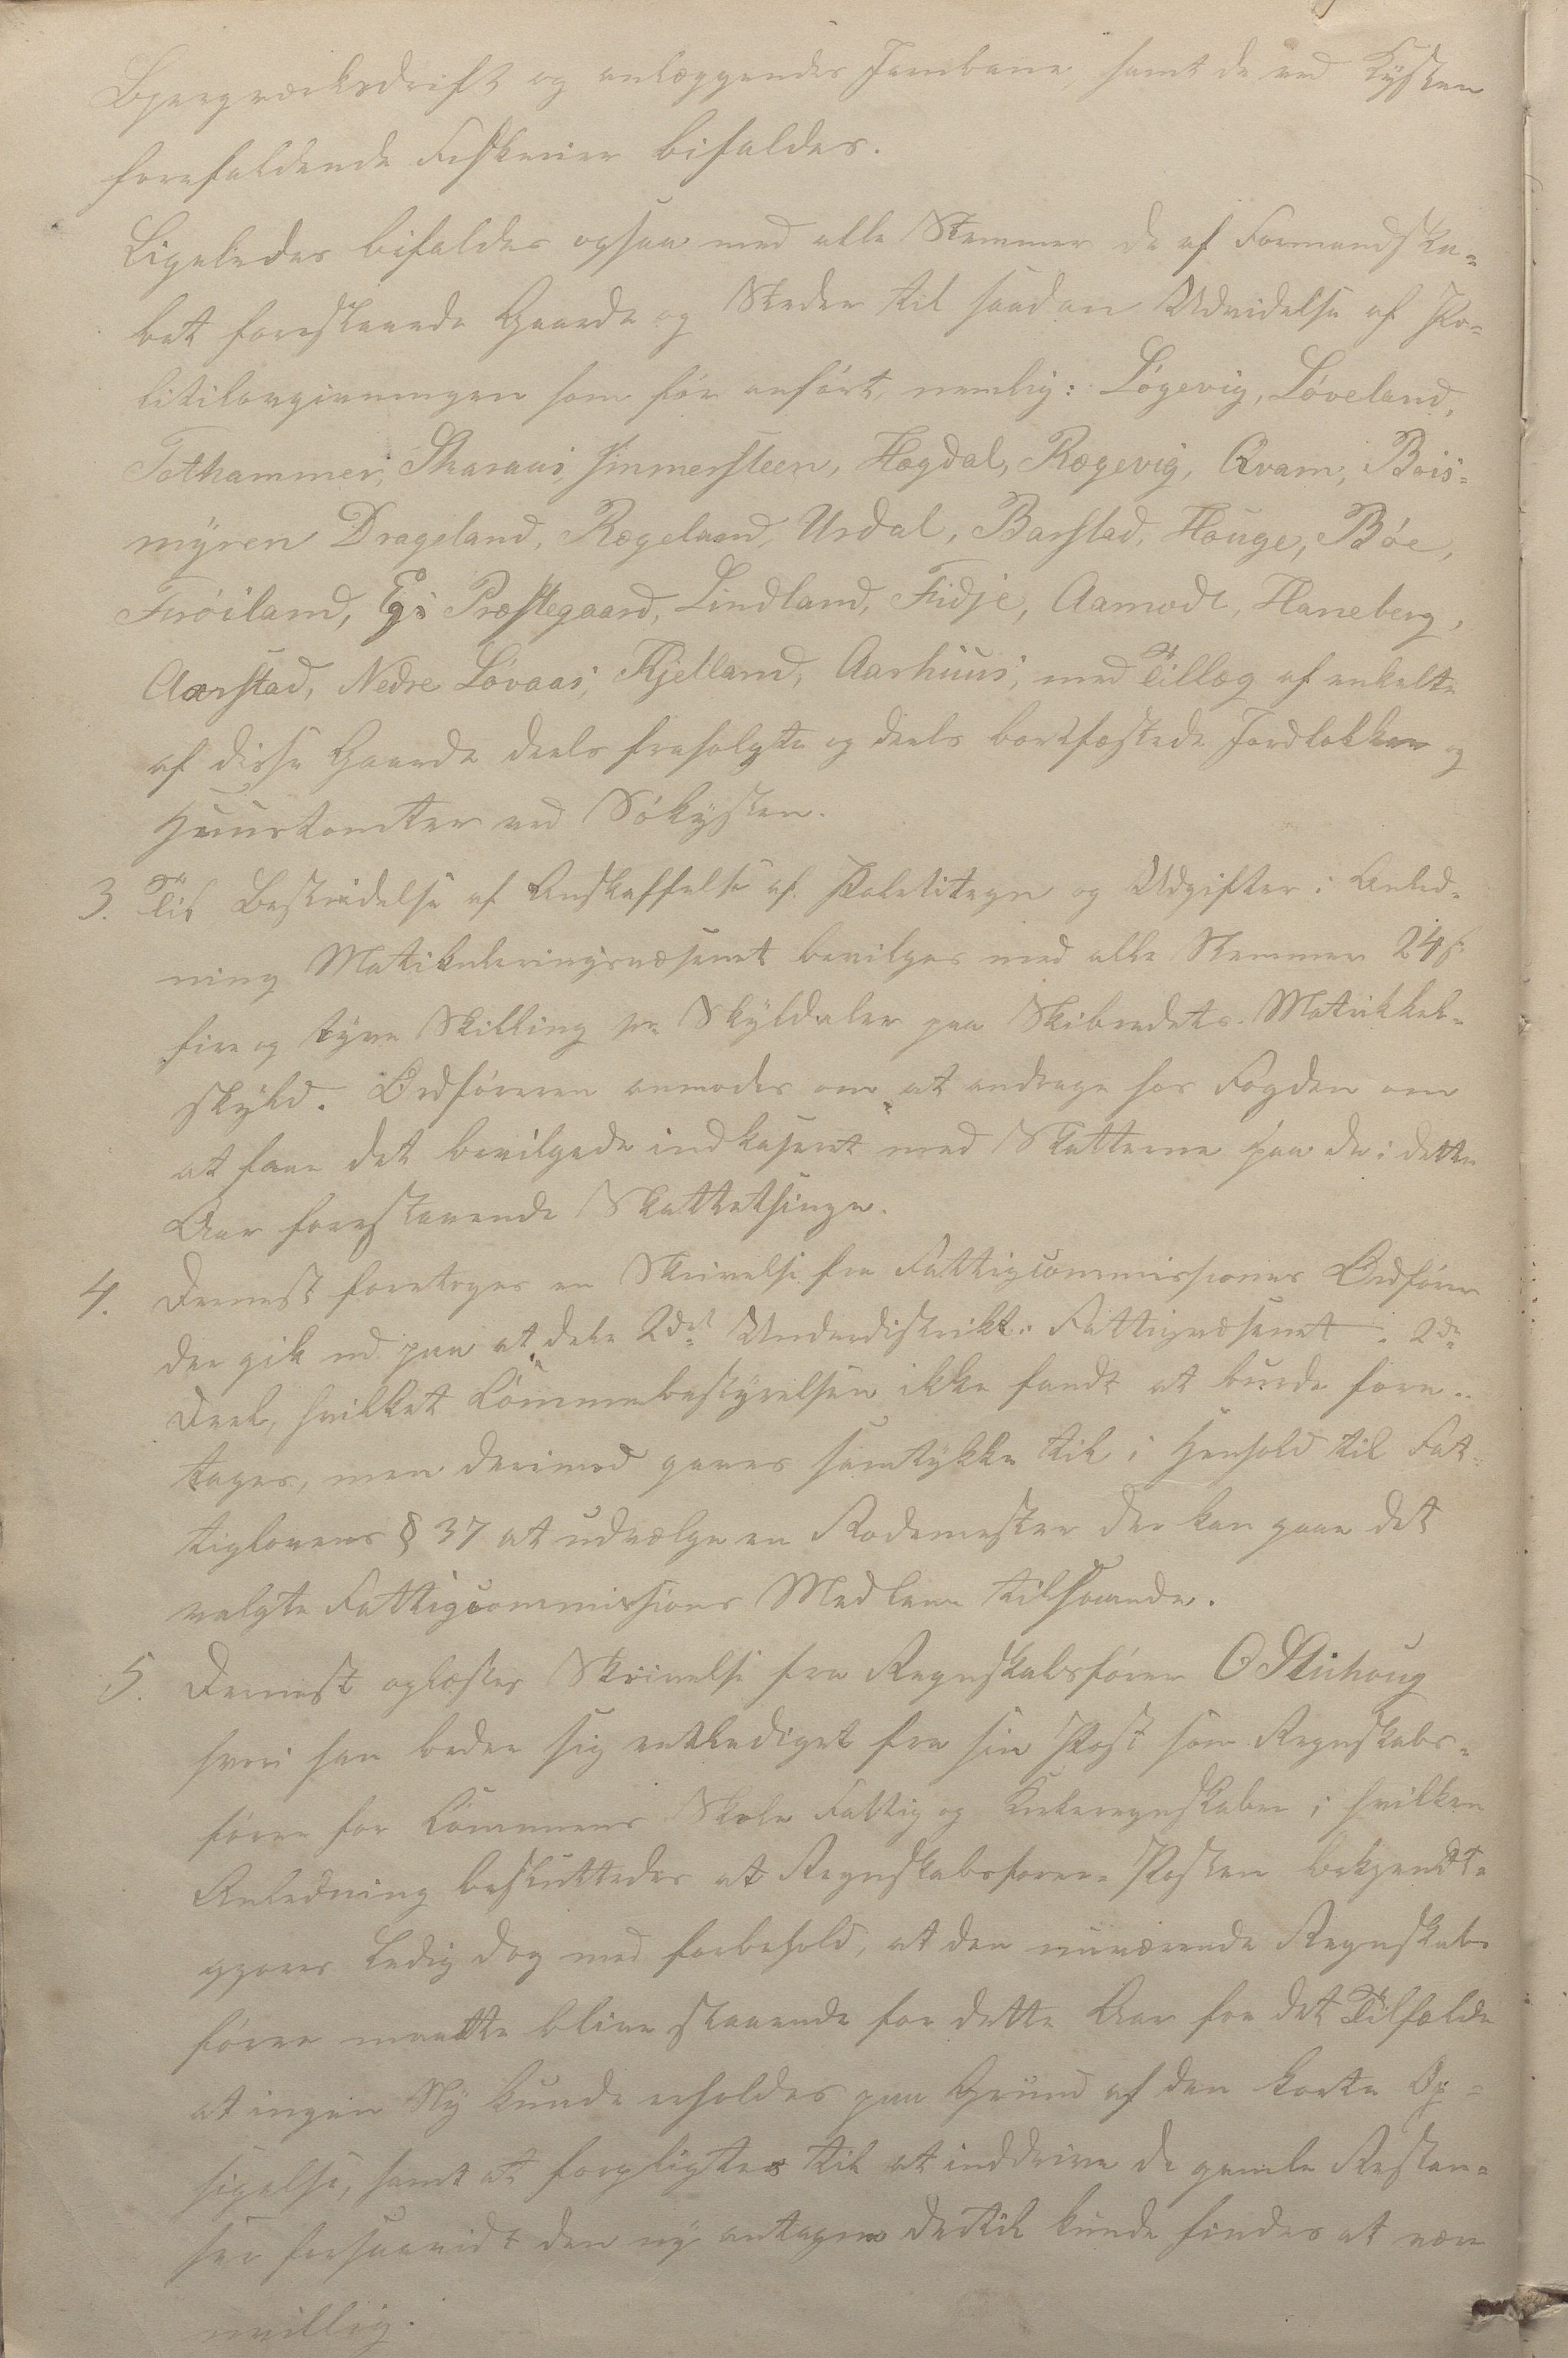 Bjergværksdrift og anlæggendes Jernbane, samt de ved Kysten
forefaldende Fiskerier bifaldes.
Ligeledes bifaldes ogsaa med alle Stemmer de af Formandska-
bet foreslaaede Gaarde og Steder til saadan Udvidelse af Po-
litilovgivningen som før anført, nemlig: Løgevig, Løveland,
Tothammer, Skaraas, Immersteen, Høgdal, Rægevig, Qvam, Bois-
myren Drageland, Rægeland, Urdal, Barstad, Houge, Bøe,
Frøiland, Egs Præstegaard, Lindland, Fidje, Aamodt, Haneberg,
Aarstad, Nedre Løvaas, Kjelland, Aarhuus, med Tillæg af enkelte
af disse Gaarde deels frasolgte og deels bortfæstede Jordlokker og
Huustomter ved Søkysten.
3. Til Bestridelse af Anskaffelse af Politetegn og Udgifter i Anled-
ning Matikuleringsvæsenet bevilges med alle Stemmer 24 s
fire og tyve Skilling pr Skyldaler paa Skibredets Matrikkel-
skyld. Ordføreren anmodes om at andrage hos Fogden om
at faae det bevilgede indkaseret med Skatterne paa de i dette
Aar forestaaende Skattethinge.
4. Dernæst foretoges en Skrivelse fra Fattigcommissionens Ordfører
der gik ud paa at dele 2det Underdistrikt i Fattigvæsenet i 2de
Deel, hvilket Communebestyrelsen ikke fandt at burde fore-
tages, men derimod gaves samtykke til i Henhold til Fat-
tiglovens § 37 at udvælge en Rodemester der kan gaae det
valgte Fattigcommissions Medlem tilhaande.
5. Dernæst oplæstes Skrivelse fra Regnskabsfører O Stuhoug
hvori han beder sig entlediget fra sin Post som Regnskabs-
fører for Communens Skole Fattig og Kirkeregnskaber i hvilken
Anledning besluttedes at Regnskabsfører Posten bekjendt-
gjøres Ledig dog med forbehold, at den nuværende Regnskabs
fører maatte blive staaende for dette Aar for det Tilfælde
at ingen Ny kunde erholdes paa Grund af den korte Op-
sigelse, samt at forpligtes til at inddrive de gamle Restan-
ser forsaavidt den ny antagne dertil kunde findes at være
uvillig.